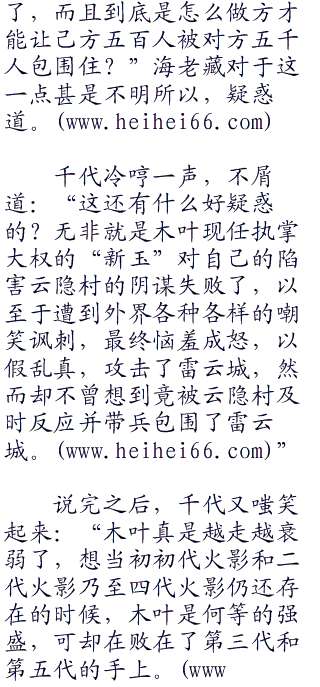 了，而且到底是怎么做方才
能让己方五百人被对方五千
人包围住？”海老藏对于这
一点甚是不明所以，疑惑
道。(www.heihei66.com)
千代冷哼一声，不屑
道：“这还有什么好疑惑
的？无非就是木叶现任执掌
大权的“新玉”对自己的陷
害云隐村的阴谋失败了，以
至于遭到外界各种各样的嘲
笑讽刺，最终恼羞成怒，以
假乱真，攻击了雷云城，然
而却不曾想到竟被云隐村及
时反应并带兵包围了雷云
城。(www.heihei66.com)”
说完之后，千代又嗤笑
起来：“木叶真是越走越衰
弱了，想当初初代火影和二
代火影乃至四代火影仍还存
在的时候，木叶是何等的强
盛，可却在败在了第三代和
第五代的手上。(www